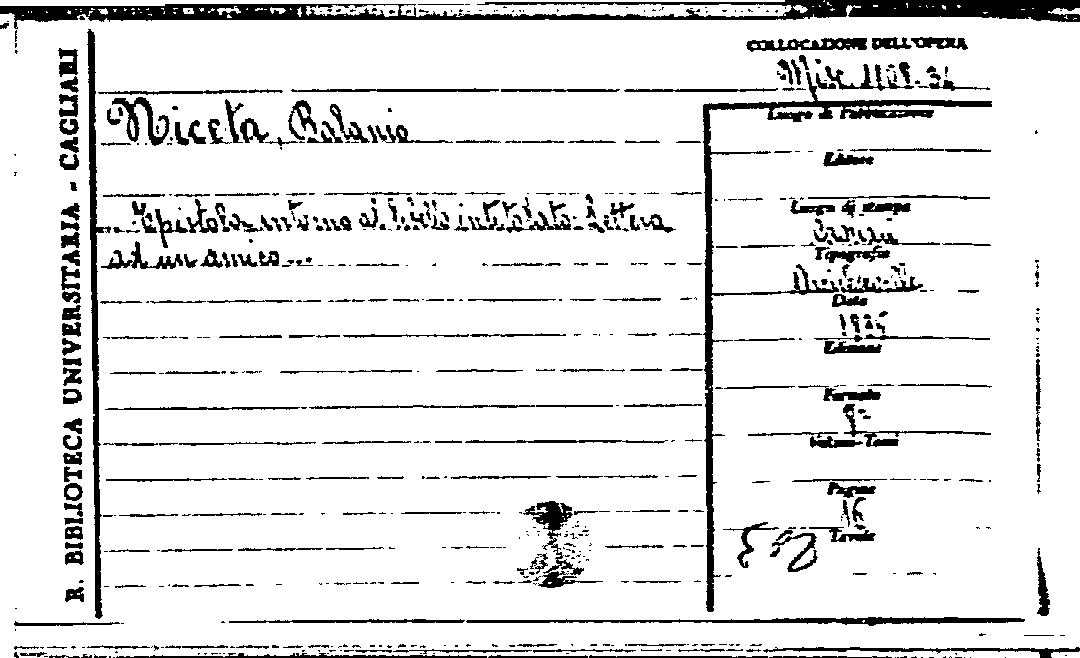 R. BIBLIOTECA UNIVERSITARIA - CAGLIARI
COLLOCAZIONE DELL'OPERA
Misc. 1108.34
Niceta, Balanio
... Epistola intorno al libello intitolato: Lettera
ad un amico...
Luogo di Pubblicazione
Editore
Luogo di stampa
Tipografia
Data
Edizione
Formato
8°
Volumi-Tomi
Pagine
16
Tavole